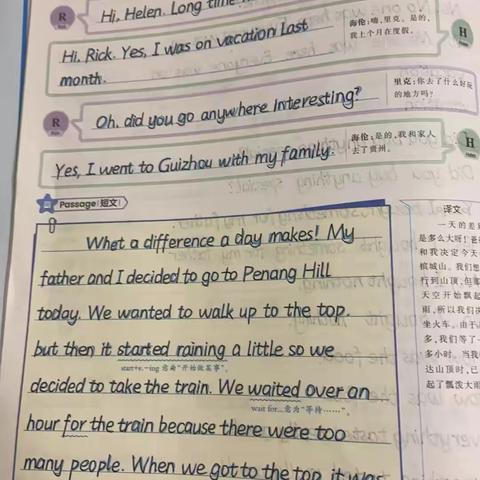 R
Hi, Helen. Long time
Hi, Rick. Yes, I was on vacation last
month.
海伦:嗨,里克。是的,
我上个月在度假。
H
R
Oh, did you go anywhere interesting?
里克:你去了什么好玩
的地方吗?
Yes, I went to Guizhou with my family.
海伦:是的,我和家人
去了贵州。
H
Passage(短文)
What a difference a day makes! My
father and I decided to go to Penang Hill
today. We wanted to walk up to the top,
but then it started raining a little so we
start+v.-ing 意为"开始做某事"。
decided to take the train. We waited over an
wait for...意为"等待……"。
hour for the train because there were too
many people. When we got to the top, it was
译文
一天的差
是多么大呀!
和我决定今天
槟城山。我们想
行到山顶,但
天空开始飘
雨,所以我们决
坐火车。由于
多,我们等了一
多小时。当我
达山顶时,已
起了瓢泼大雨